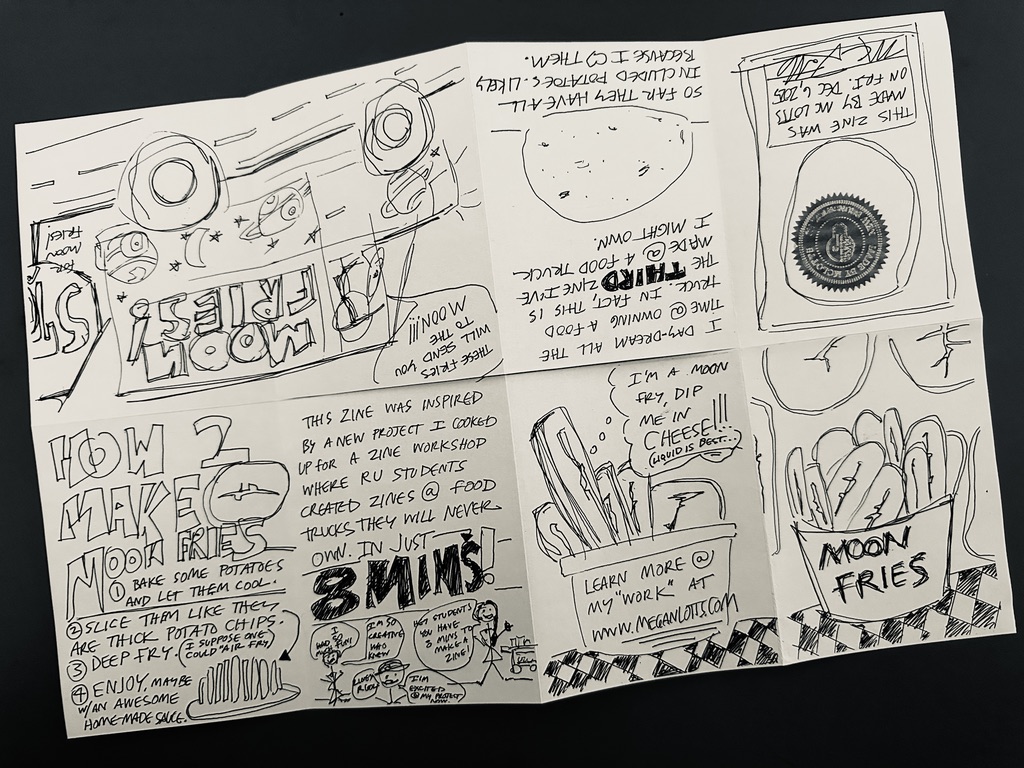 HOW 2
MAKE
MOON FRIES
① BAKE SOME POTATOES
AND LET THEM COOL.
② SLICE THEM LIKE THEY
ARE THICK POTATO CHIPS.
③ DEEP FRY. (I SUPPOSE ONE
COULD "AIR FRY)
④ ENJOY, MAYBE
W/AN AWESOME
HOME-MADE SAUCE.
THIS ZINE WAS INSPIRED
BY A NEW PROJECT I COOKED
UP FOR A ZINE WORKSHOP
WHERE RU STUDENTS
CREATED ZINES @ FOOD
TRUCKS THEY WILL NEVER
OWN. IN JUST
8 MINS!
I'M SO
CREATIVE
WHO
KNEW
HEY STUDENTS
YOU HAVE
8 MINS TO
MAKE A
ZINE!
I'M
EXCITED
@ MY PROJECT
NOW.
I'M A MOON
FRY, DIP
ME IN
CHEESE!!!
(LIQUID IS BEST...)
LEARN MORE @
MY "WORK" AT
WWW.MEGANLOTTS.COM
MOON
FRIES
THIS ZINE WAS
MADE BY MK LOTTS
ON FRI. DEC 6, 2025
I DAY-DREAM ALL THE
TIME @ OWNING A FOOD
TRUCK. IN FACT, THIS IS
THE THIRD ZINE I'VE
MADE @ A FOOD TRUCK
I MIGHT OWN.
SO FAR THEY HAVE ALL
INCLUDED POTATOES. LIKELY
BECAUSE I ♡ THEM.
THESE FRIES
WILL SEND YOU
TO THE
MOON!!!
MOON
FRIES!
FOR
MOON
FRIES!